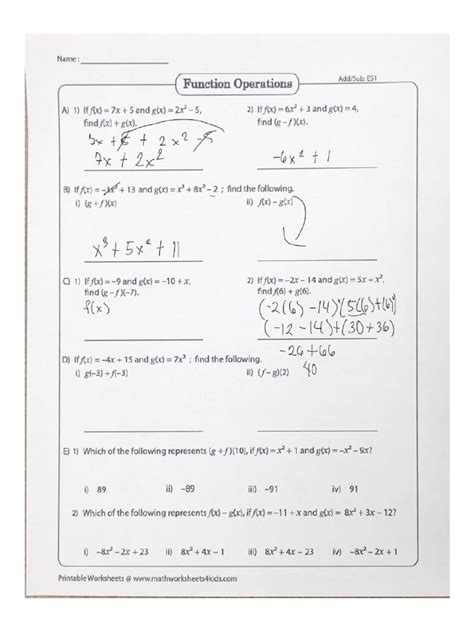 Name :
Function Operations
Add/Sub: ES1
A) 1) If f(x) = 7x + 5 and g(x) = 2x² – 5,
find f(x) + g(x).
7x + 5 + 2x² - 5
7x + 2x²
2) If f(x) = 6x² + 3 and g(x) = 4,
find (g – f)(x).
-6x² + 1
B) If f(x) = –3x² + 13 and g(x) = x³ + 8x² – 2 ; find the following.
i) (g + f)(x)
x³ + 5x² + 11
ii) f(x) – g(x)
C) 1) If f(x) = –9 and g(x) = –10 + x,
find (g – f)(–7).
f(x)
2) If f(x) = –2x – 14 and g(x) = 5x + x²,
find f(6) + g(6).
(-2(6) -14)(5(6)+(6)²
(-12 -14)+(30+36)
-26+66
40
D) If f(x) = –4x + 15 and g(x) = 7x³ ; find the following.
i) g(–3) + f(–3)
ii) (f – g)(2)
E) 1) Which of the following represents (g + f)(10), if f(x) = x² + 1 and g(x) = –x² – 9x?
i) 89
ii) –89
iii) –91
iv) 91
2) Which of the following represents f(x) – g(x), if f(x) = –11 + x and g(x) = 8x² + 3x – 12?
i) –8x² – 2x + 23
ii) 8x² + 4x – 1
iii) 8x² + 4x – 23
iv) –8x² – 2x + 1
Printable Worksheets @ www.mathworksheets4kids.com